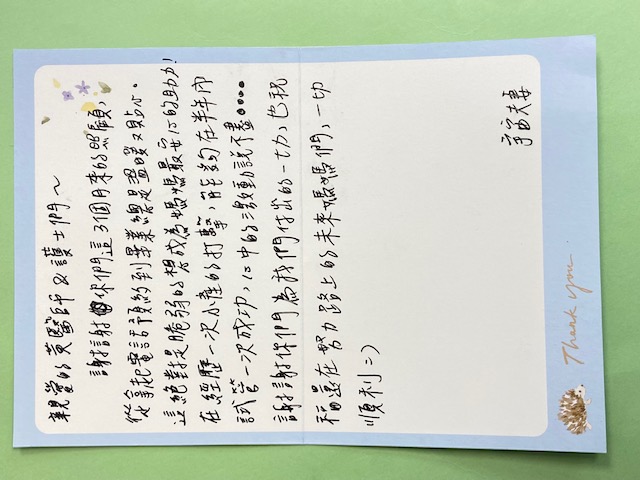 親愛的黃醫師&護士們~
謝謝你們這3個月來的照顧,
從拿起電話預約到畢業總是溫暖又貼心。
這絕對是脆弱的想成為媽媽最安心的助力!
在經歷一次小產的打擊,能夠在半年內
試管一次成功,心中的激動說不盡....
謝謝你們為我們付出的一切,也祝
福還在努力路上的未來媽媽們,一切
順利=)
宇宙夫妻
Thank you